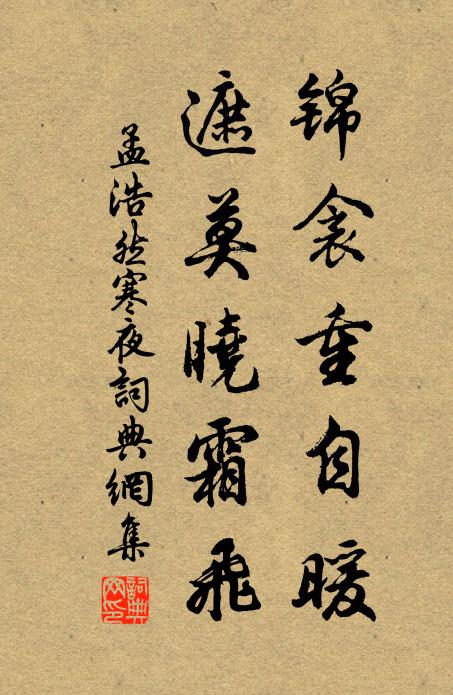 锦衾重自暖
遮莫曉霜飛
孟浩然寒夜詞典網集
詞典网印